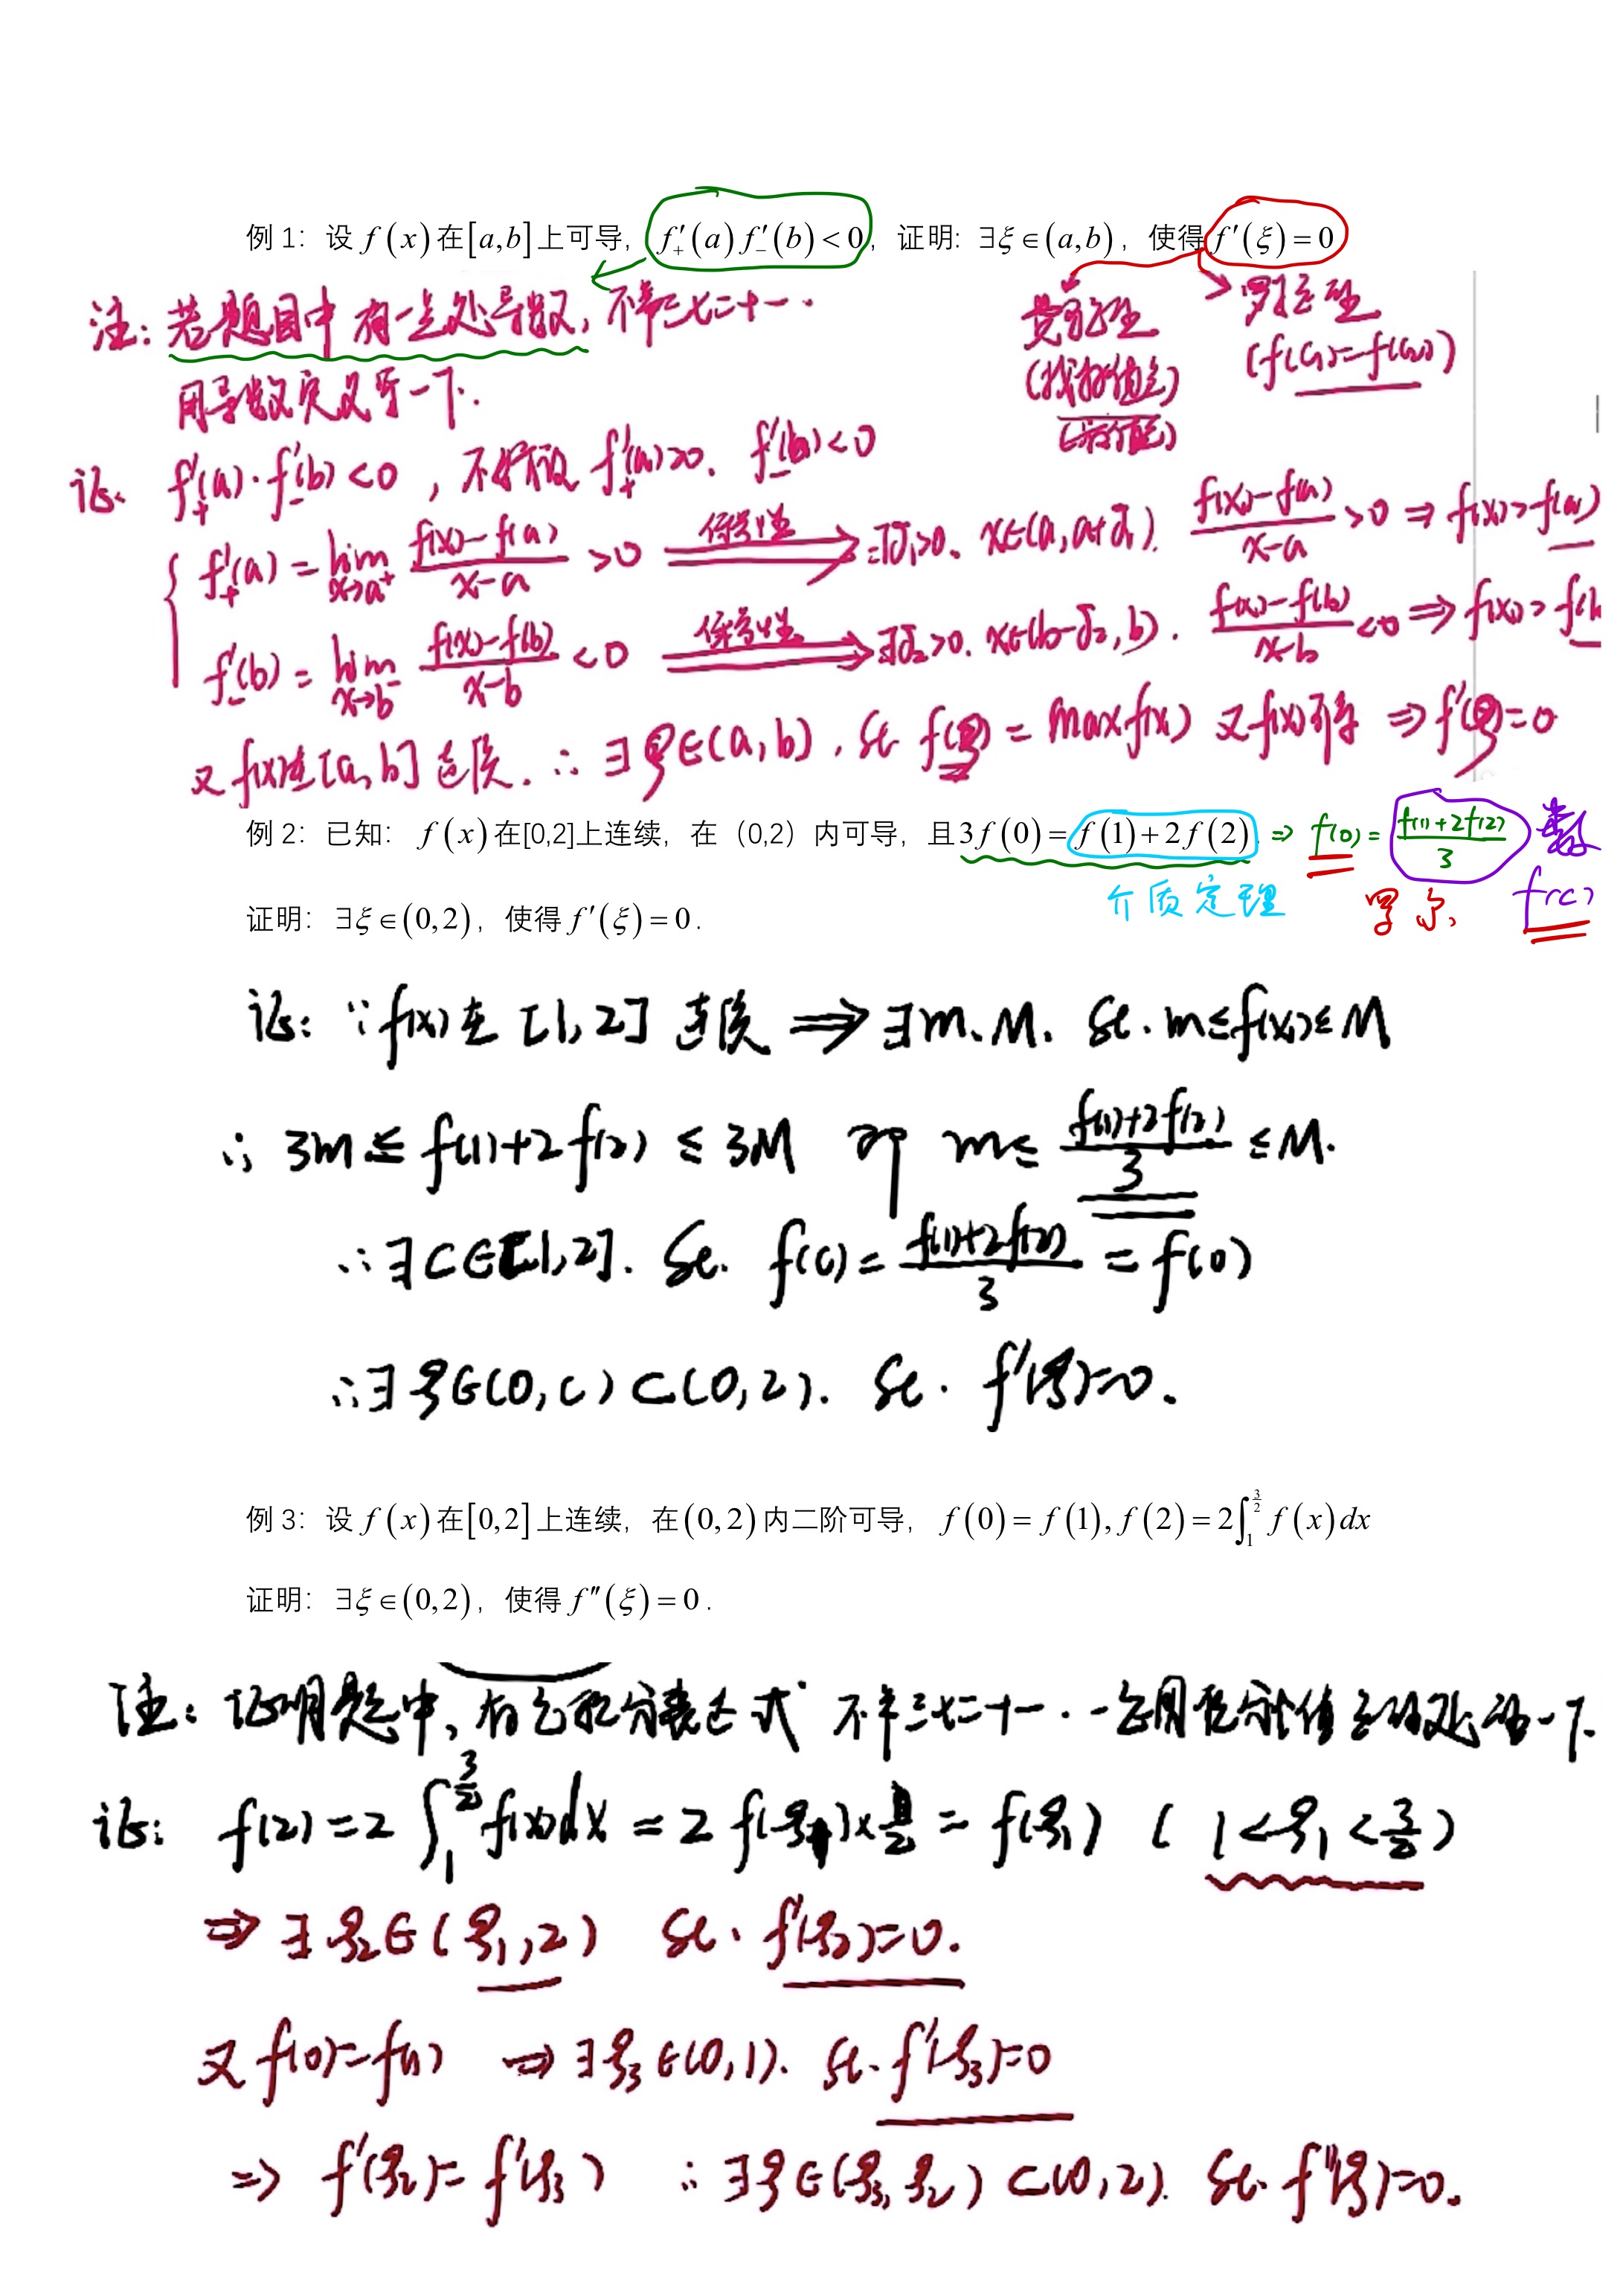 例 1：设 f(x) 在[a,b]上可导，f′₊(a) f′₋(b)<0，证明: ∃ξ∈(a,b)，使得 f′(ξ)=0
注：若题目中有一点处导数，不管三七二十一.
用导数定义写一下.
费马型
罗尔型
(f(c₁)=f(c₂))
证： f′₊(a)·f′₋(b)<0，不妨设 f′₊(a)>0. f′₋(b)<0
f′₊(a)=lim x→a⁺ (f(x)-f(a))/(x-a) >0 保号性 ⟹ ∃δ₁>0、x∈(a,a+δ₁). (f(x)-f(a))/(x-a) >0 ⇒ f(x)>f(a)
f′₋(b)=lim x→b⁻ (f(x)-f(b))/(x-b) <0 保号性 ⟹ ∃δ₂>0. x∈(b-δ₂,b). (f(x)-f(b))/(x-b) <0 ⇒ f(x)>f(b
又 f(x)在[a,b]连续. ∴ ∃ξ∈(a,b). st f(ξ)=max f(x) 又f(x)可导 ⇒ f′(ξ)=0
例 2：已知： f(x) 在[0,2]上连续，在（0,2）内可导，且3f(0)=f(1)+2f(2). ⇒ f(0)= (f(1)+2f(2))/3 数
介质定理 罗尔 f(c)
证明： ∃ξ∈(0,2)，使得 f′(ξ)=0.
证：∵ f(x)在[1,2]连续 ⟹ ∃m、M. st. m≤f(x)≤M
∴ 3m≤f(1)+2f(2)≤3M 即 m≤ (f(1)+2f(2))/3 ≤M.
∴∃C∈[1,2]. St. f(c)= (f(1)+2f(2))/3 =f(0)
∴∃ξ∈(0,c)⊂(0,2). St. f′(ξ)=0.
例 3：设 f(x) 在[0,2]上连续，在(0,2)内二阶可导， f(0)=f(1), f(2)=2∫₁^(3/2) f(x)dx
证明： ∃ξ∈(0,2)，使得 f″(ξ)=0.
注：证明题中，有定积分表达式 不管三七二十一..一定用积分中值定理处理一下.
证: f(2)=2∫₁^(3/2) f(x)dx = 2f(ξ₁)×1/2 = f(ξ₁) (1<ξ₁<3/2)
⇒ ∃ξ₂∈(ξ₁,2) St. f′(ξ₂)=0.
又 f(0)=f(1) ⇒ ∃ξ₃∈(0,1). St. f′(ξ₃)=0
⇒ f′(ξ₂)=f′(ξ₃) ∴ ∃ξ∈(ξ₃,ξ₂)⊂(0,2). St. f″(ξ)=0.